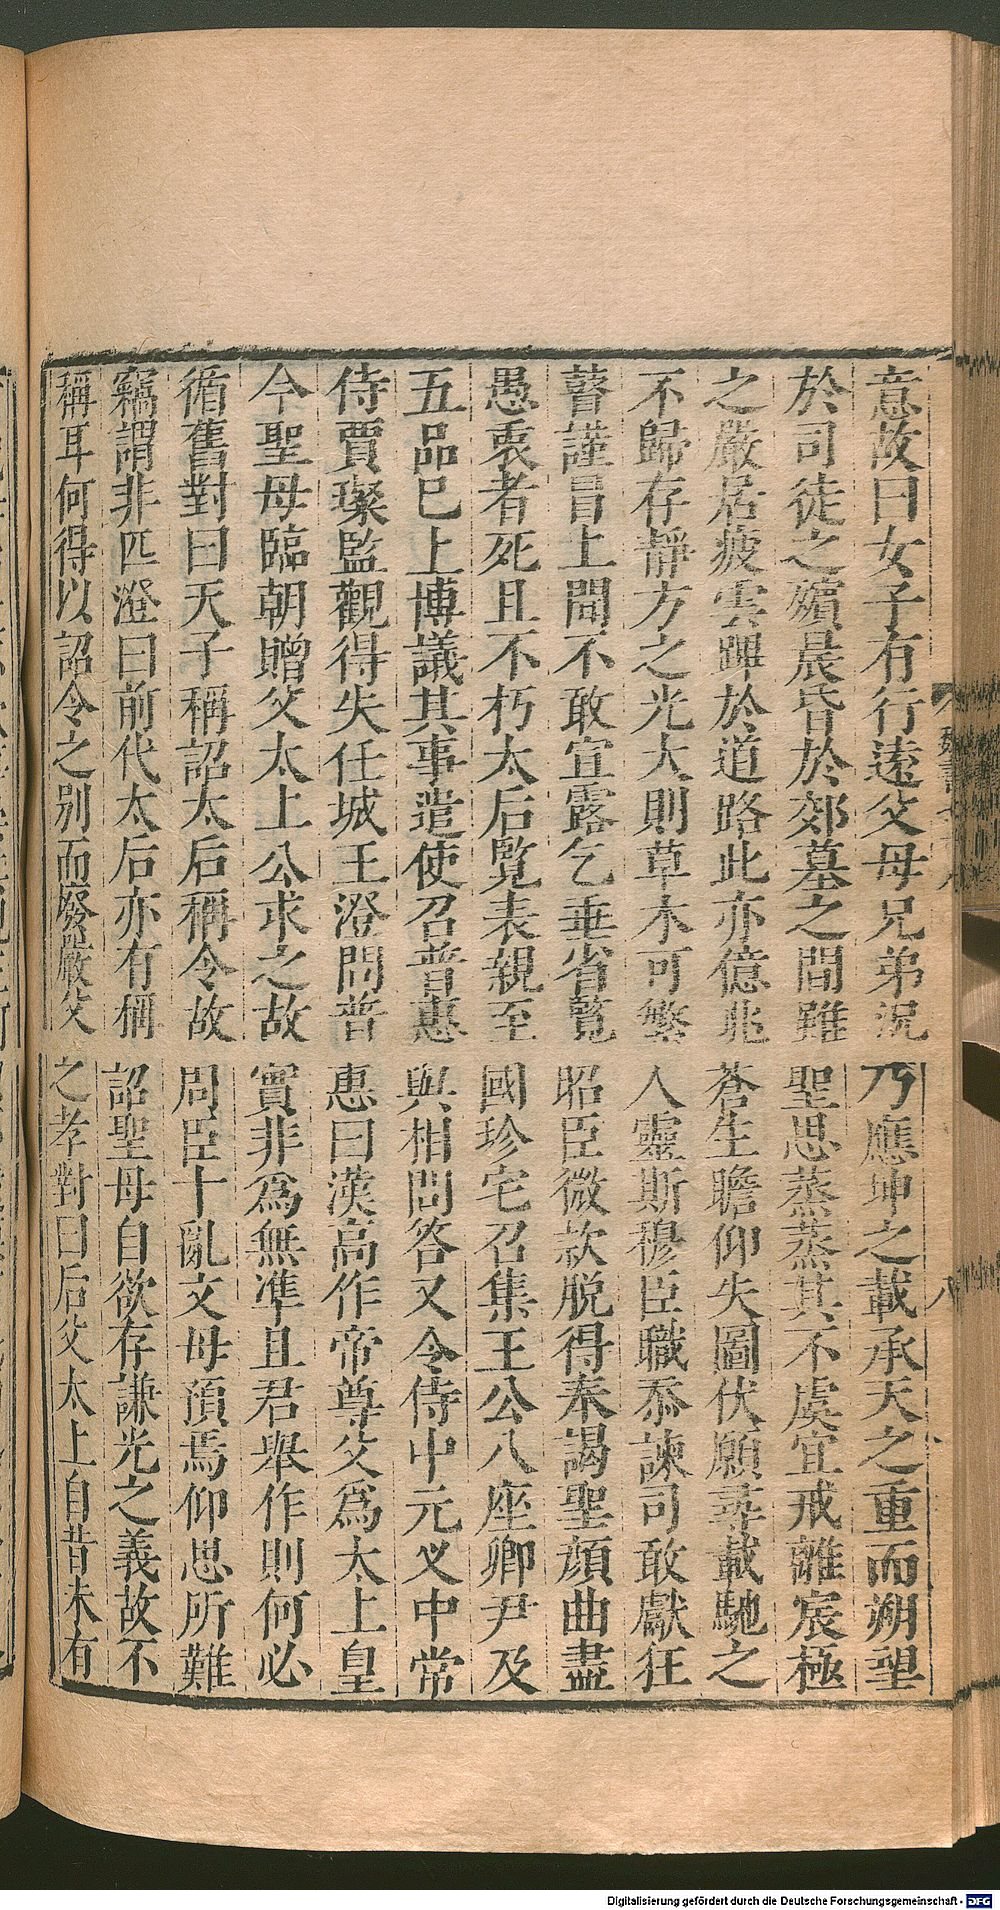 意故曰女子有行遠父母兄弟況乃應坤之載承天之重而朔望
於司徒之殯晨昏於郊墓之間雖聖思蒸蒸其不虞宜戒離宸極
之嚴居疲雲蹕於道路此亦億兆蒼生瞻仰失圖伏願尋載馳之
不歸存靜方之光大則草木可繁人靈斯穆臣職忝諫司敢獻狂
瞽謹冒上聞不敢宣露乞垂省覧昭臣微款脫得奉謁聖顏曲盡
愚衷者死且不朽太后覧表親至國珍宅召集王公八座卿尹及
五品已上博議其事遣使召普惠與相問答又令侍中元叉中常
侍賈璨監觀得失任城王澄問普惠曰漢高作帝尊父爲太上皇
今聖母臨朝贈父太上公求之故實非爲無準且君舉作則何必
循舊對曰天子稱詔太后稱令故周臣十亂文母預焉仰思所難
竊謂非匹澄曰前代太后亦有稱詔聖母自欲存謙光之義故不
稱耳何得以詔令之别而廢嚴父之孝對曰后父太上自昔未有
魏書
八
Digitalisierung gefördert durch die Deutsche Forschungsgemeinschaft - DFG